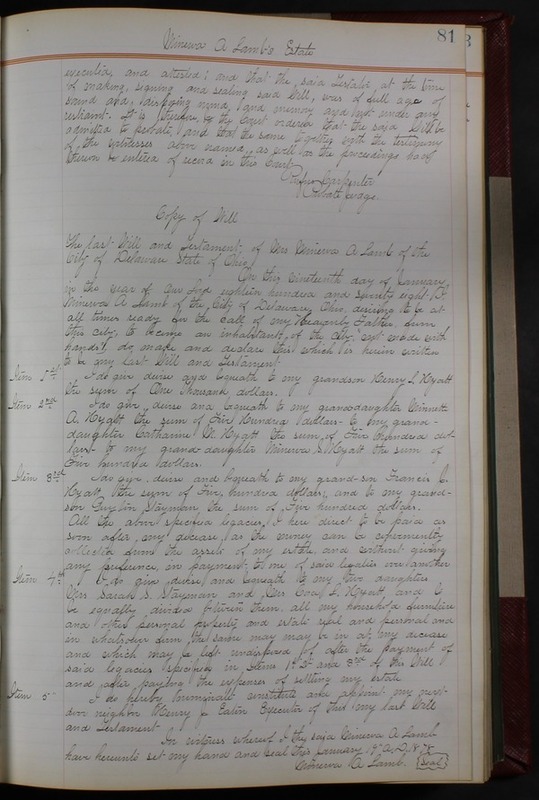 81
Minerva A Lamb's Estate
executed, and attested; and that the, said Testator, at the time
of making, signing and sealing said Will, was of full age of
sound and, disposing mind, and memory and not under any
restraint. It is therefore, by the Court ordered that the said Will be
admitted to probate, and that the same together with the testimony
of the witnesses above named, as well as the proceedings had
thereon be entered of record in this Court.
Carpenter
Probate Judge
Copy of Will
The last Will and Testament, of Mrs Minerva A Lamb of the
City of Delaware State of Ohio.
On this nineteenth day of January
in the year of Our Lord eighteen hundred and seventy eight, I
Minerva A Lamb of the City of Delaware, Ohio, desiring to be at
all times ready for the call of my Heavenly Father, from
this city, to become an inhabitant, of the City "not made with
hands", do make and declare this which is herein written
to be my last Will and Testament
Item 1st I do give devise and bequeath to my grandson Henry S. Hyatt
the sum of One Thousand dollars.
Item 2nd I do give, devise and bequeath to my granddaughter Minnette
A. Hyatt the sum of Five Hundred dollars - to my grand-
daughter Catharine M. Hyatt the sum of Five hundred dol-
lars to my grand-daughter Minerva S. Hyatt the sum of
Five hundred dollars.
Item 3rd I do give, devise and bequeath to my grand-son Francis C.
Hyatt the sum of Five hundred dollars, and to my grand-
son Stayman, the sum of Five hundred dollars.
All the above specified legacies, I here direct to be paid as
soon after, my decease, as the money can be conveniently
collected from the assets of my estate, and without giving
any preference, in payment to one of said legatees over another
Item 4th I do give, devise and bequeath to my two daughters
Mrs Sarah S. Stayman and Mrs L. Hyatt and to
be equally divided between them, all my household furniture
and other personal property and estate real and personal and
in whatsoever form the same may may be in at my decease
and which may be left undisposed of after the payment of
said legacies specified in Items 1st 2d and 3rd of this Will
and after paying the expenses of settling my estate.
Item 5 I do hereby nominate constitute and appoint my next
door neighbor Henry Eaton Executor of this my last Will
and Testament
In witness whereof I the said Minerva A Lamb
have hereunto set my hand and seal this January 19th A.D. 1878
Minerva A Lamb. {Seal}